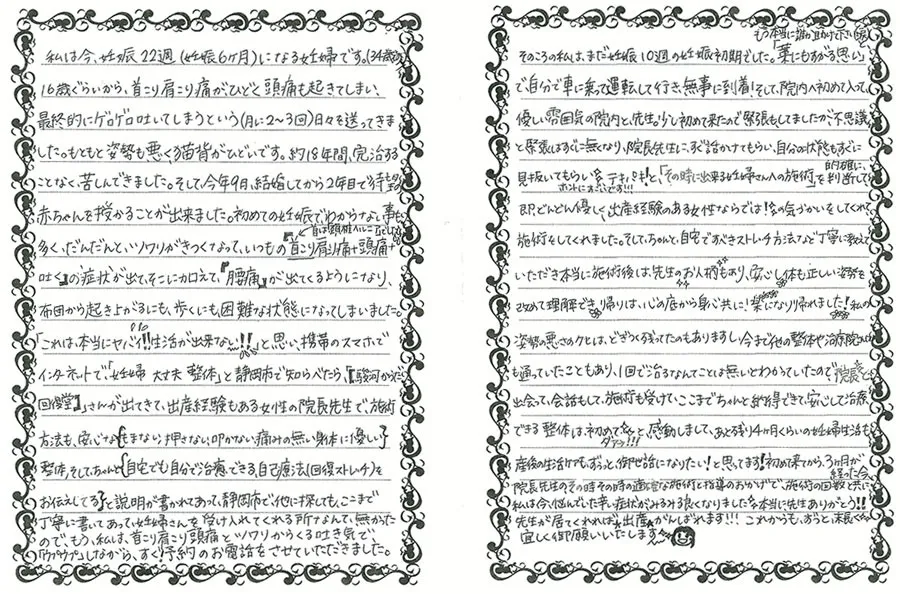 私は今、妊娠22週(妊娠6ヶ月)になる妊婦です。(34歳)
16歳ぐらいから、首こり肩こり痛がひどく頭痛も起きてしまい、
最終的にゲロゲロ吐いてしまうという(月に2〜3回)日々を送ってきま
した。もともと姿勢も悪く猫背がひどいです。約18年間、完治する
ことなく、苦しんできました。そして、今年9月、結婚してから2年目で待望の
赤ちゃんを授かることが出来ました。初めての妊娠でわからない事も
多く、だんだんと、ツワリがきつくなって、いつもの『首こり肩こり痛+頭痛+
吐く』の症状が出て、そこに加えて、『腰痛』が出てくるようになり、
布団から起き上がるにも、歩くにも困難な状態になってしまいました。
「これは、本当にヤバイ!!生活が出来ない!!」と思い、携帯のスマホで
インターネットで、「妊婦 大丈夫 整体」と静岡市で調べたら、『駿河からだ
回復堂』さんが出てきて、出産経験もある女性の院長先生で、施術
方法も、安心な{もまない、押さない、叩かない痛みの無い身体に優しい}
整体。そして、ちゃんと{自宅でも自分で治療できる、自己療法(回復ストレッチ)を
お伝えしてる}と説明が書かれてあって、静岡市で、他に探しても、ここまで
丁寧に書いてあって、妊婦さんを受け入れてくれる所なんて、無かった
ので、もう、私は、首こり肩こり頭痛とツワリからくる吐き気で
「ウプウプ」しながら、すぐ予約のお電話をさせていただきました。
もう本当に誰か助けて下さい
そのころの私は、まだ妊娠10週の妊娠初期でした。「藁にもすがる思い」
で、自分で車に乗って運転して行き、無事に到着!そして、院内へ初めて入って、
優しい雰囲気の院内と、先生。少し初めて来たので緊張をしましたが、不思議
と緊張はすぐに無くなり、院長先生に、すぐ話かけてもらい、自分の状態もすぐに
見抜いてもらい、テキパキ!と「その時に出来る妊婦さんへの施術」を的確に、判断して
ホントにすごいです!!!
即、どんどん優しく、出産経験のある女性ならでは!の気づかいをしてくれ、
施術をしてくれました。そして、ちゃんと、自宅ですべきストレッチ方法など丁寧に教えて
いただき本当に施術後は、先生のお人柄もあり、安心し体も正しい姿勢を
改めて理解でき、帰りは、心の底から身心共に!楽になり帰れました!私の
姿勢の悪さのクセは、どぎつく残ってたのもありますし、今まで他の整体や治療院にも
も通っていたこともあり、1回で治るなんてことは無いとわかっていたので
出会って、会話もして、施術も受けて、ここまでちゃんと納得できて、安心して治療
できる整体は、初めてだ!!!と感動しまして、あと残り4ヶ月くらいの妊婦生活も
産後の生活ケアも、ずっと、御世話になりたい!と思ってます!初めて来てから、3ヶ月が経った今、
院長先生のその時その時の適切な施術と指導のおかげで、施術の回数と共に
私は今、悩んでいた辛い症状がみるみる良くなりました本当に先生ありがとう!!
先生が居てくれれば、出産がんばれます!!!これからも、ずっと、末長く
宜しく御願いいたします